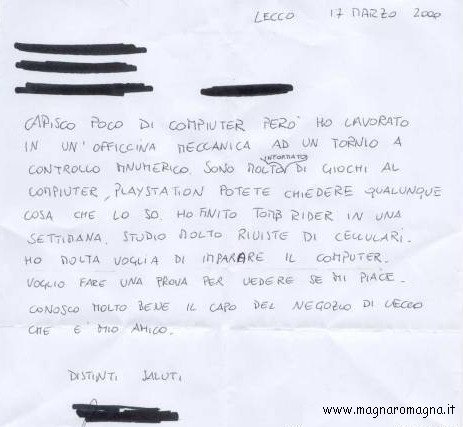 LECCO 17 MARZO 2000
CAPISCO POCO DI COMPIUTER PERÒ HO LAVORATO
IN UN' OFFICCINA MECCANICA AD UN TORNIO A
CONTROLLO MNUMERICO. SONO MOLTO INFORMATO DI GIOCHI AL
COMPIUTER, PLAYSTATION POTETE CHIEDERE QUALUNQUE
COSA CHE LO SO. HO FINITO TOMB RIDER IN UNA
SETTIMANA. STUDIO MOLTO RIVISTE DI CELLULARI.
HO MOLTA VOGLIA DI IMPARARE IL COMPUTER.
VOGLIO FARE UNA PROVA PER VEDERE SE MI PIACE.
CONOSCO MOLTO BENE IL CAPO DEL NEGOZIO DI LECCO
CHE E' MIO AMICO.
DISTINTI SALUTI
www.magnaromagna.it